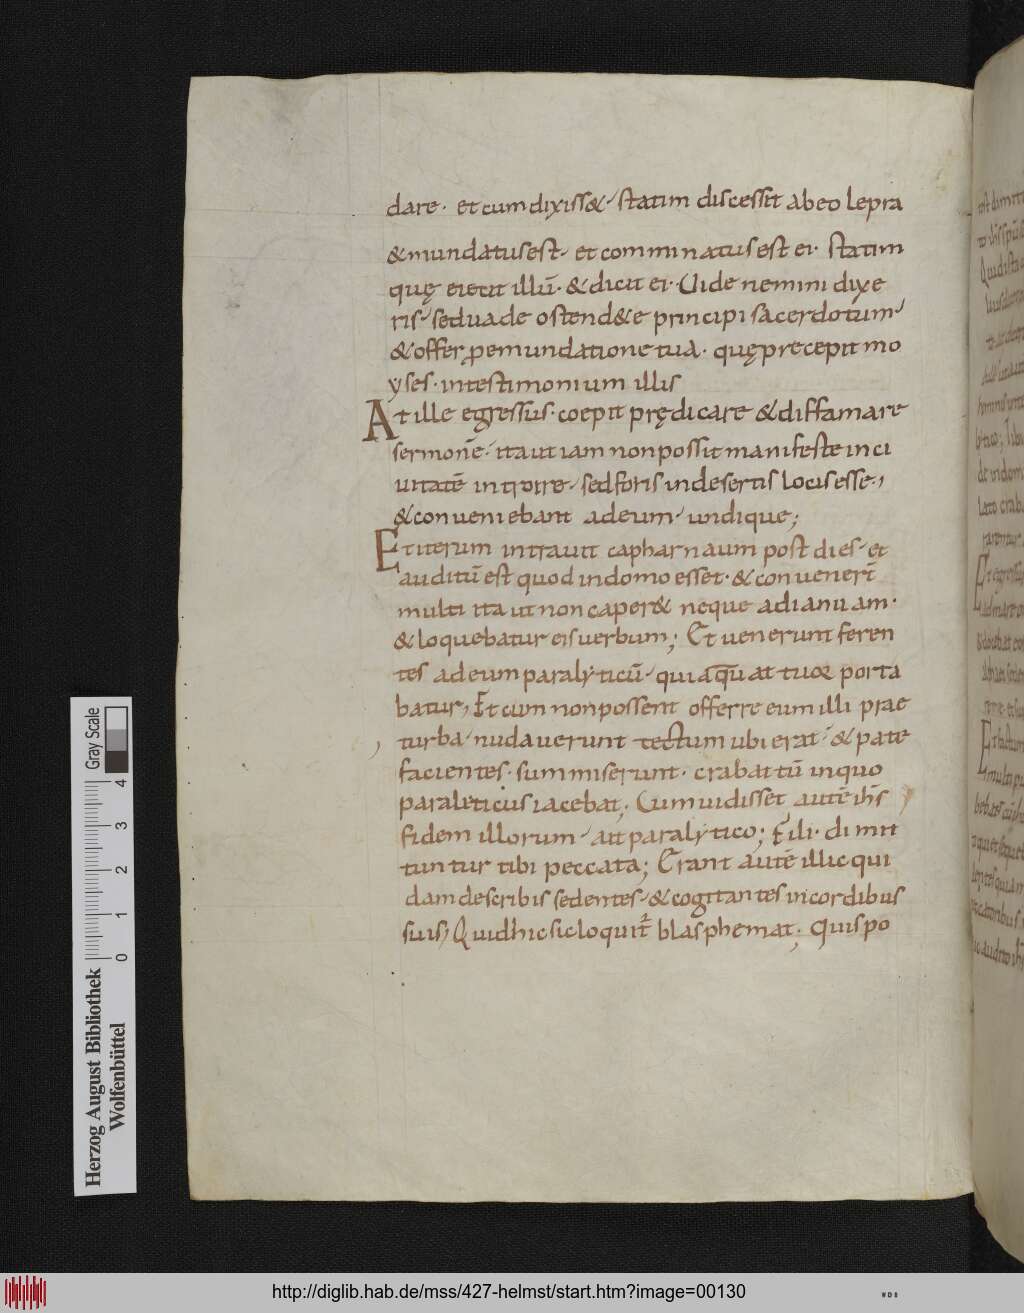 dare · et cum dixiss& statim discessit ab eo lepra
& mundatus est · et comminatus est ei · statim
quę eiecit illū · & dicit ei · Uide nemini dixe
ris · sed uade ostend&e principi sacerdotum
& offer ꝓ emundatione tua · quę precepit mo
yses · in testimonium illis
At ille egressus · coepit prędicare & diffamare
sermonē · ita ut iam non possit manifeste in ci
uitatē introire · sed foris in desertis locis esse ·
& conueniebant ad eum · undique ;
Et iterum intrauit capharnaum post dies · et
auditū est quod in domo esset · & conuenert̄
multi ita ut non caper& neque ad ianuam ·
& loquebatur eis uerbum ; Et uenerunt feren
tes ad eum paralyticū · qui a quattuor porta
batur, Et cum non possent offerre eum illi prae
turba · nudauerunt tectum ubi erat · & pate
facientes · summiserunt · crabattū in quo
paraleticus iacebat ; Cum uidisset autē ihs̄
fidem illorum · ait paralytico ; Fili · dimit
tuntur tibi peccata ; Erant autē illic qui
dam de scribis sedentes · & cogitantes in cordibus
suis, Quid hic sic loquit̄ blasphemat ; Quis po
Herzog August Bibliothek
Wolfenbüttel
0 1 2 3 4
Gray Scale
http://diglib.hab.de/mss/427-helmst/start.htm?image=00130